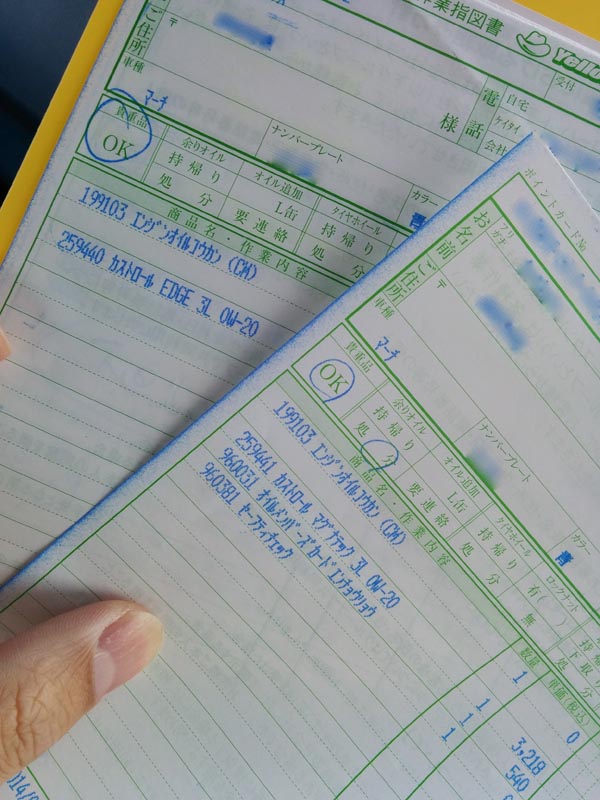 作業指図書
ご住所
〒
様
電話
自宅
ケイタイ
会社
受付
車種
マーチ
貴重品
OK
余りオイル
持帰り
処分
オイル追加
L缶
要連絡
ナンバープレート
タイヤホイール
持帰り
処分
カラー
青
商品名・作業内容
199103 エンジンオイルコウカン (CM)
259440 カストロール EDGE 3L 0W-20
ポイントカード№
フリガナ
お名前
ご住所
〒
車種
マーチ
貴重品
OK
余りオイル
持帰り
処分
オイル追加
L缶
要連絡
ナンバープレート
タイヤホイール
持帰り
処分
ロックナット
有( )
無
カラー
青
商品名・作業内容
数量
単価(税込)
199103 エンジンオイルコウカン (CM)
259441 カストロール マグナテック 3L 0W-20
960031 オイルメンバーズカードエンチョウリョウ
960381 セーフティチェック
1
0
1
3,218
1
540
1